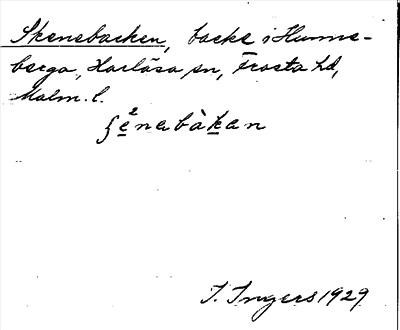 Skenebacken, backe i Humme-
berga, Harlösa sn, Frosta hd,
Malm. l.
ʃe²nabàkan
I. Ingers 1929